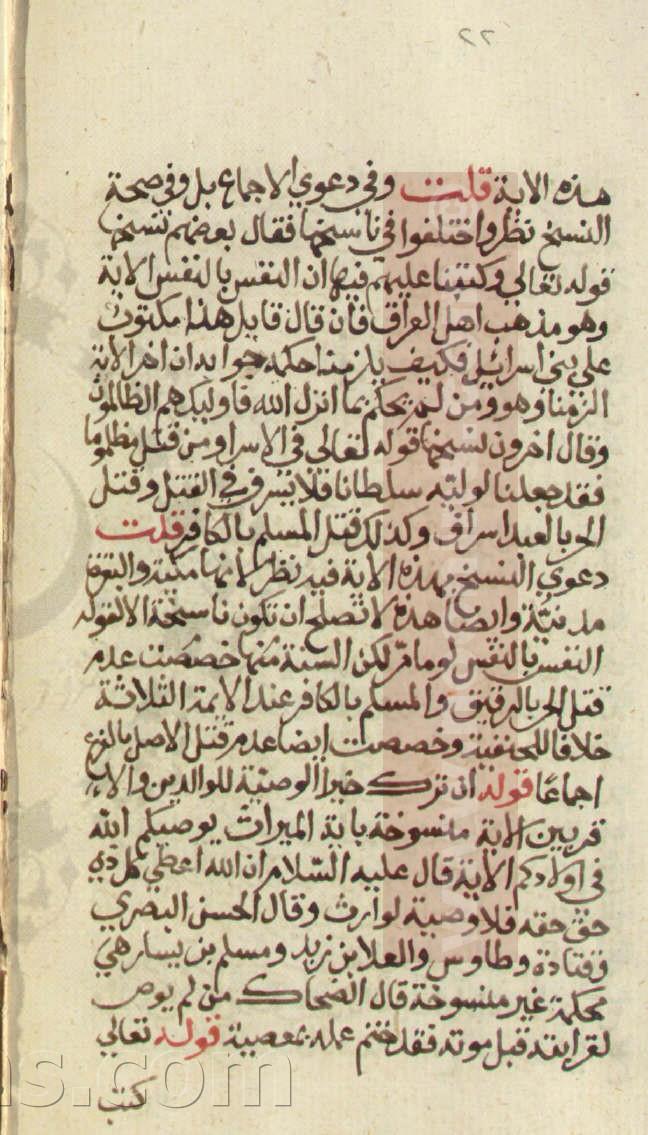 ٢٢
هذه الاية قلت وفي دعوي الاجماع بل وفي صحة
النسخ نظر واختلفوا في ناسخها فقال بعضهم نسخها
قوله تعالي وكتبنا عليهم فيها ان النفس بالنفس الاية
وهو مذهب اهل العراق فان قال قايل هذا مكتوب
علي بني اسرائيل فكيف يلزمنا حكمه جوابه ان اخر الاية
الزمنا وهو ومن لم يحكم بما انزل الله فاوليك هم الظالمون
وقال اخرون نسخها قوله تعالي في الاسرا ومن قتل مظلوما
فقد جعلنا لوليه سلطانا فلا يسرف في القتل وقتل
الحر بالعبد اسراف وكذلك قتل المسلم بالكافر قلت
دعوي النسخ بهذه الاية فيه نظر لانها مكية والبقرة
مدنية وايضا هذه لا تصلح ان تكون ناسخة الا لقوله
النفس بالنفس لو ما مر لكن السنة منها خصصت عدم
قتل الحر بالرقيق والمسلم بالكافر عند الايمة الثلاثة
خلافا للحنفية وخصصت ايضا عدم قتل الاصل بالفرع
اجماعا قوله ان ترك خيرا الوصية للوالدين والا
قربين الاية منسوخة باية الميراث يوصيكم الله
في اولادكم الاية قال عليه السلام ان الله اعطي كل ذي
حق حقه فلا وصية لوارث وقال الحسن البصري
وقتادة وطاوس والعلا بن زيد ومسلم بن يسار هي
محكمة غير منسوخة قال الضحاك من لم يوص
لقرابته قبل موته فقد ختم عمله بمعصية قوله تعالي
كتب
ns.com